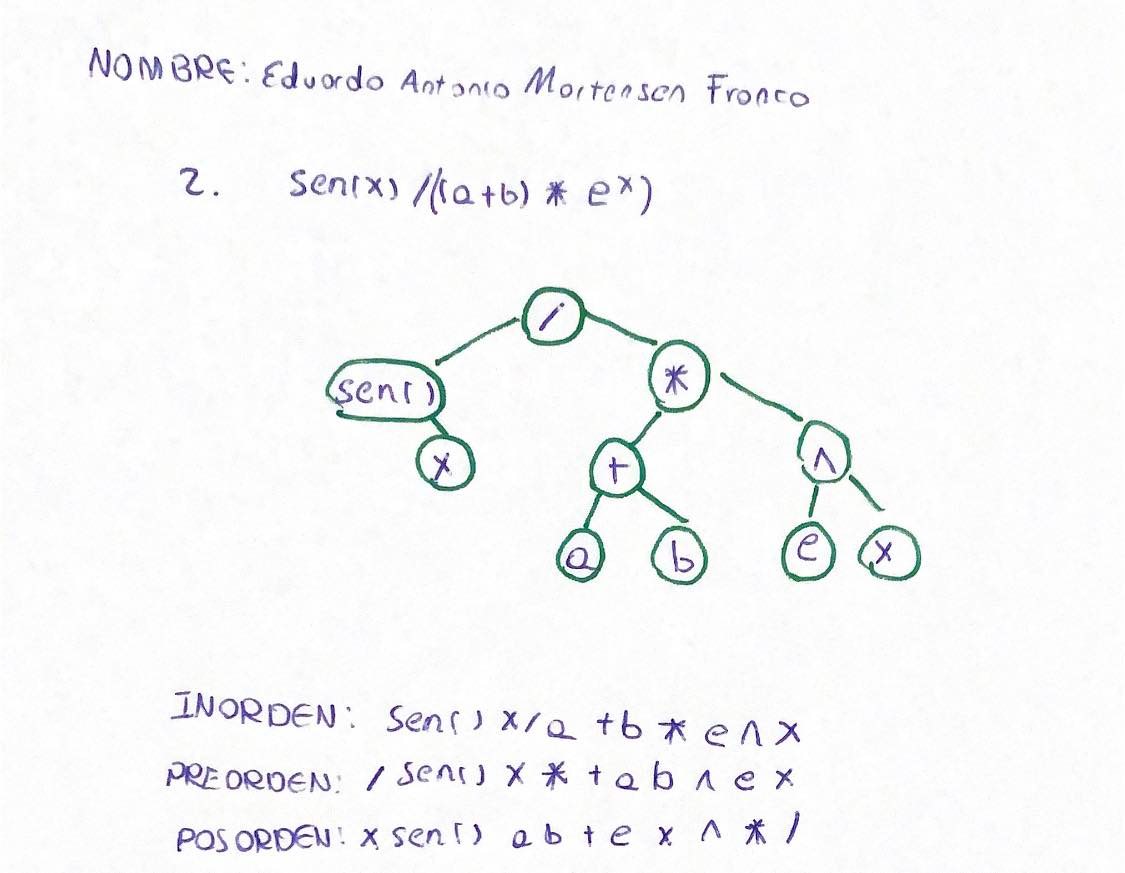 NOMBRE: Eduardo Antonio Mortensen Franco
2. sen(x) /((a+b) * eˣ)
/
sen() *
x + ^
a b e x
INORDEN: sen() x / a + b * e ^ x
PREORDEN: / sen() x * + a b ^ e x
POSORDEN: x sen() a b + e x ^ * /